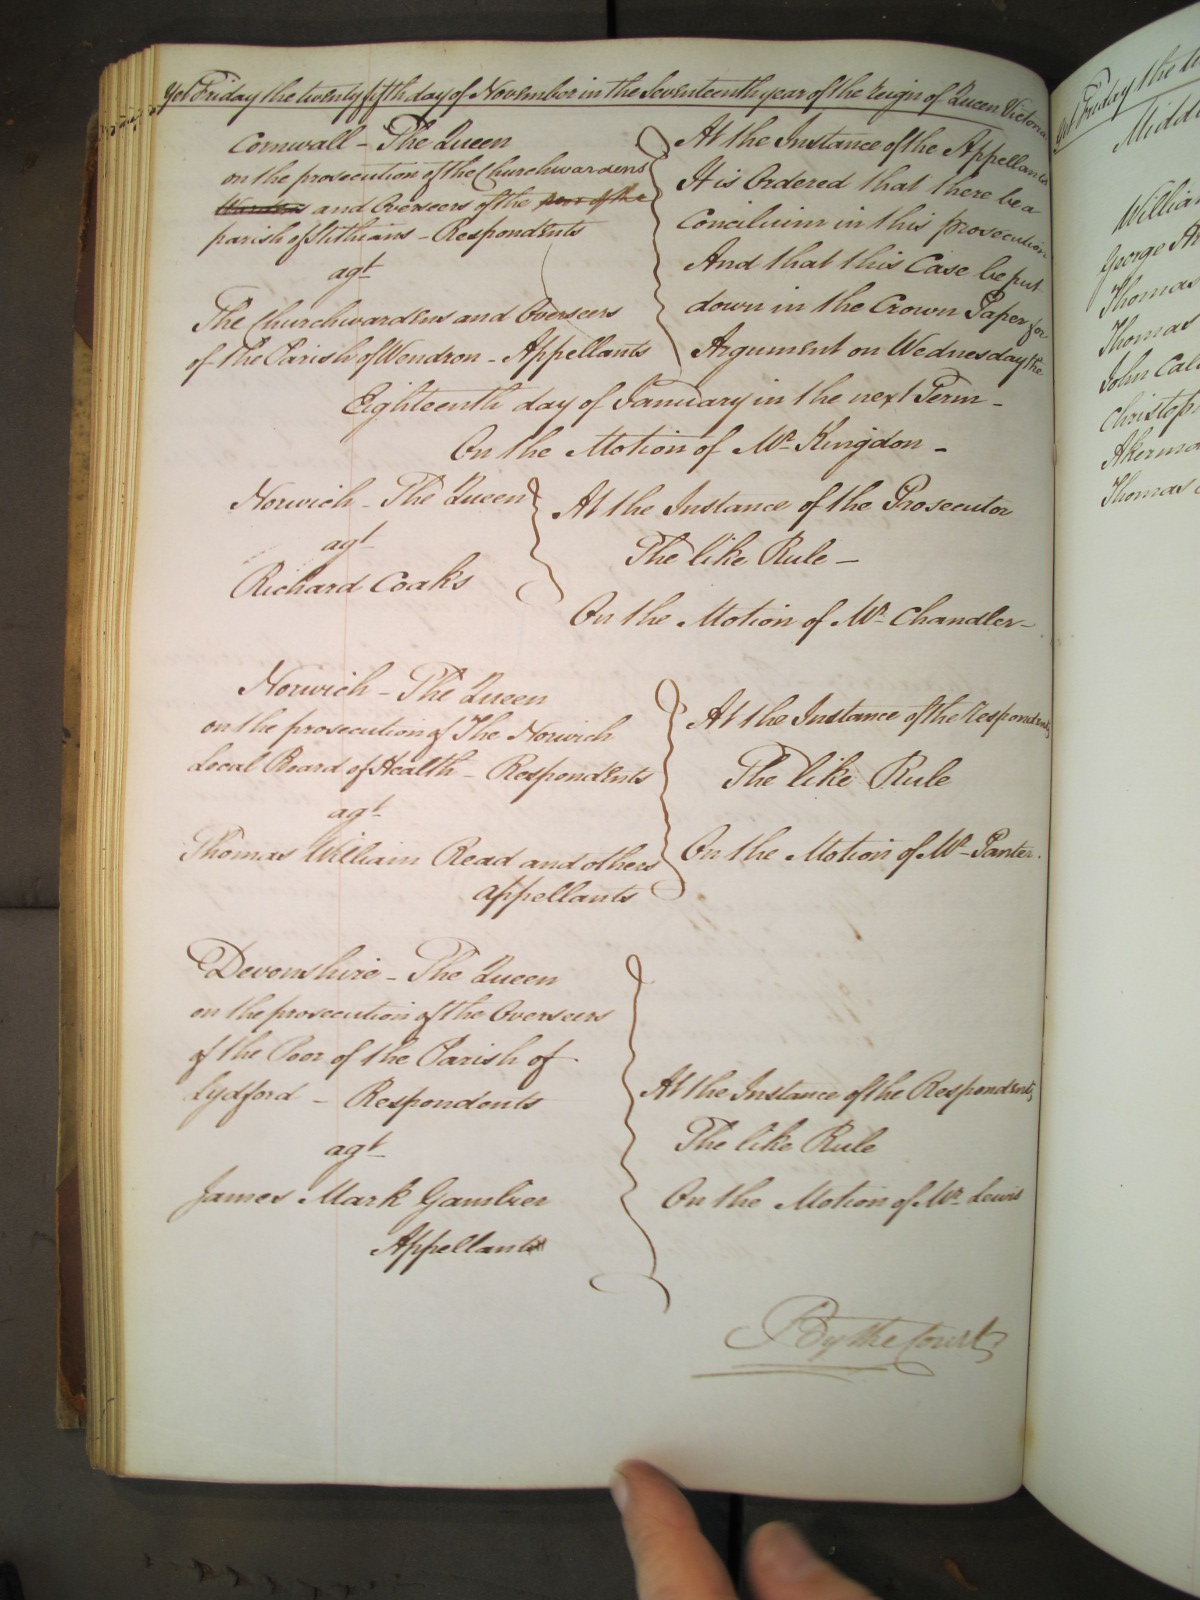 Yet Friday the twenty fifth day of November in the Seventeenth year of the reign of Queen Victoria
Cornwall - The Queen
on the prosecution of the Churchwardens
and Overseers of the
parish of Stithians - Respondents
agt
The Churchwardens and Overseers
of the Parish of Wendron - Appellants
At the Instance of the Appellants
It is Ordered that there be a
Concilium in this prosecution
And that this Case be put
down in the Crown Paper for
Argument on Wednesday the
Eighteenth day of January in the next Term -
On the Motion of Mr. Kingdon -
Norwich - The Queen
agt
Richard Coaks
At the Instance of the Prosecutor
The like Rule -
On the Motion of Mr. Chandler -
Norwich - The Queen
on the prosecution of The Norwich
Local Board of Health - Respondents
agt
Thomas William Read and others
Appellants
At the Instance of the Respondents
The like Rule
On the Motion of Mr. Panter.
Devonshire - The Queen
on the prosecution of the Overseers
of the Poor of the Parish of
Lydford - Respondents
agt
James Mark Gambier
Appellant
At the Instance of the Respondents,
The like Rule
On the Motion of Mr. Lewis
By the Court
Yet Friday the
Midd
William
George
Thomas
Thomas
John
Christop
Akerma
Thomas